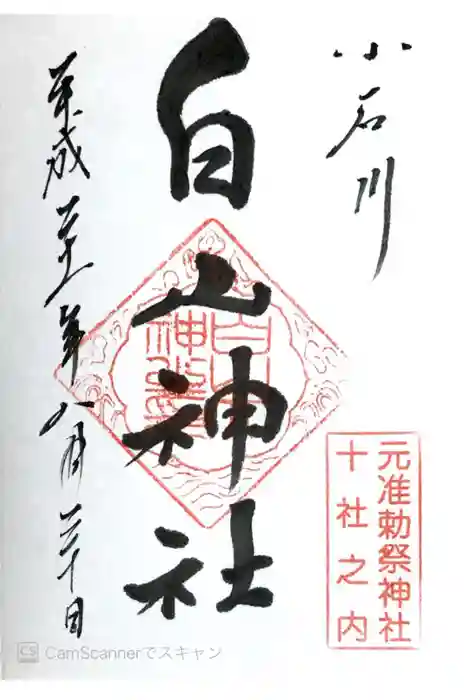 小石川
白山神社
平成二十一年八月二十日
元准勅祭神社
十社之内
CS CamScannerでスキャン